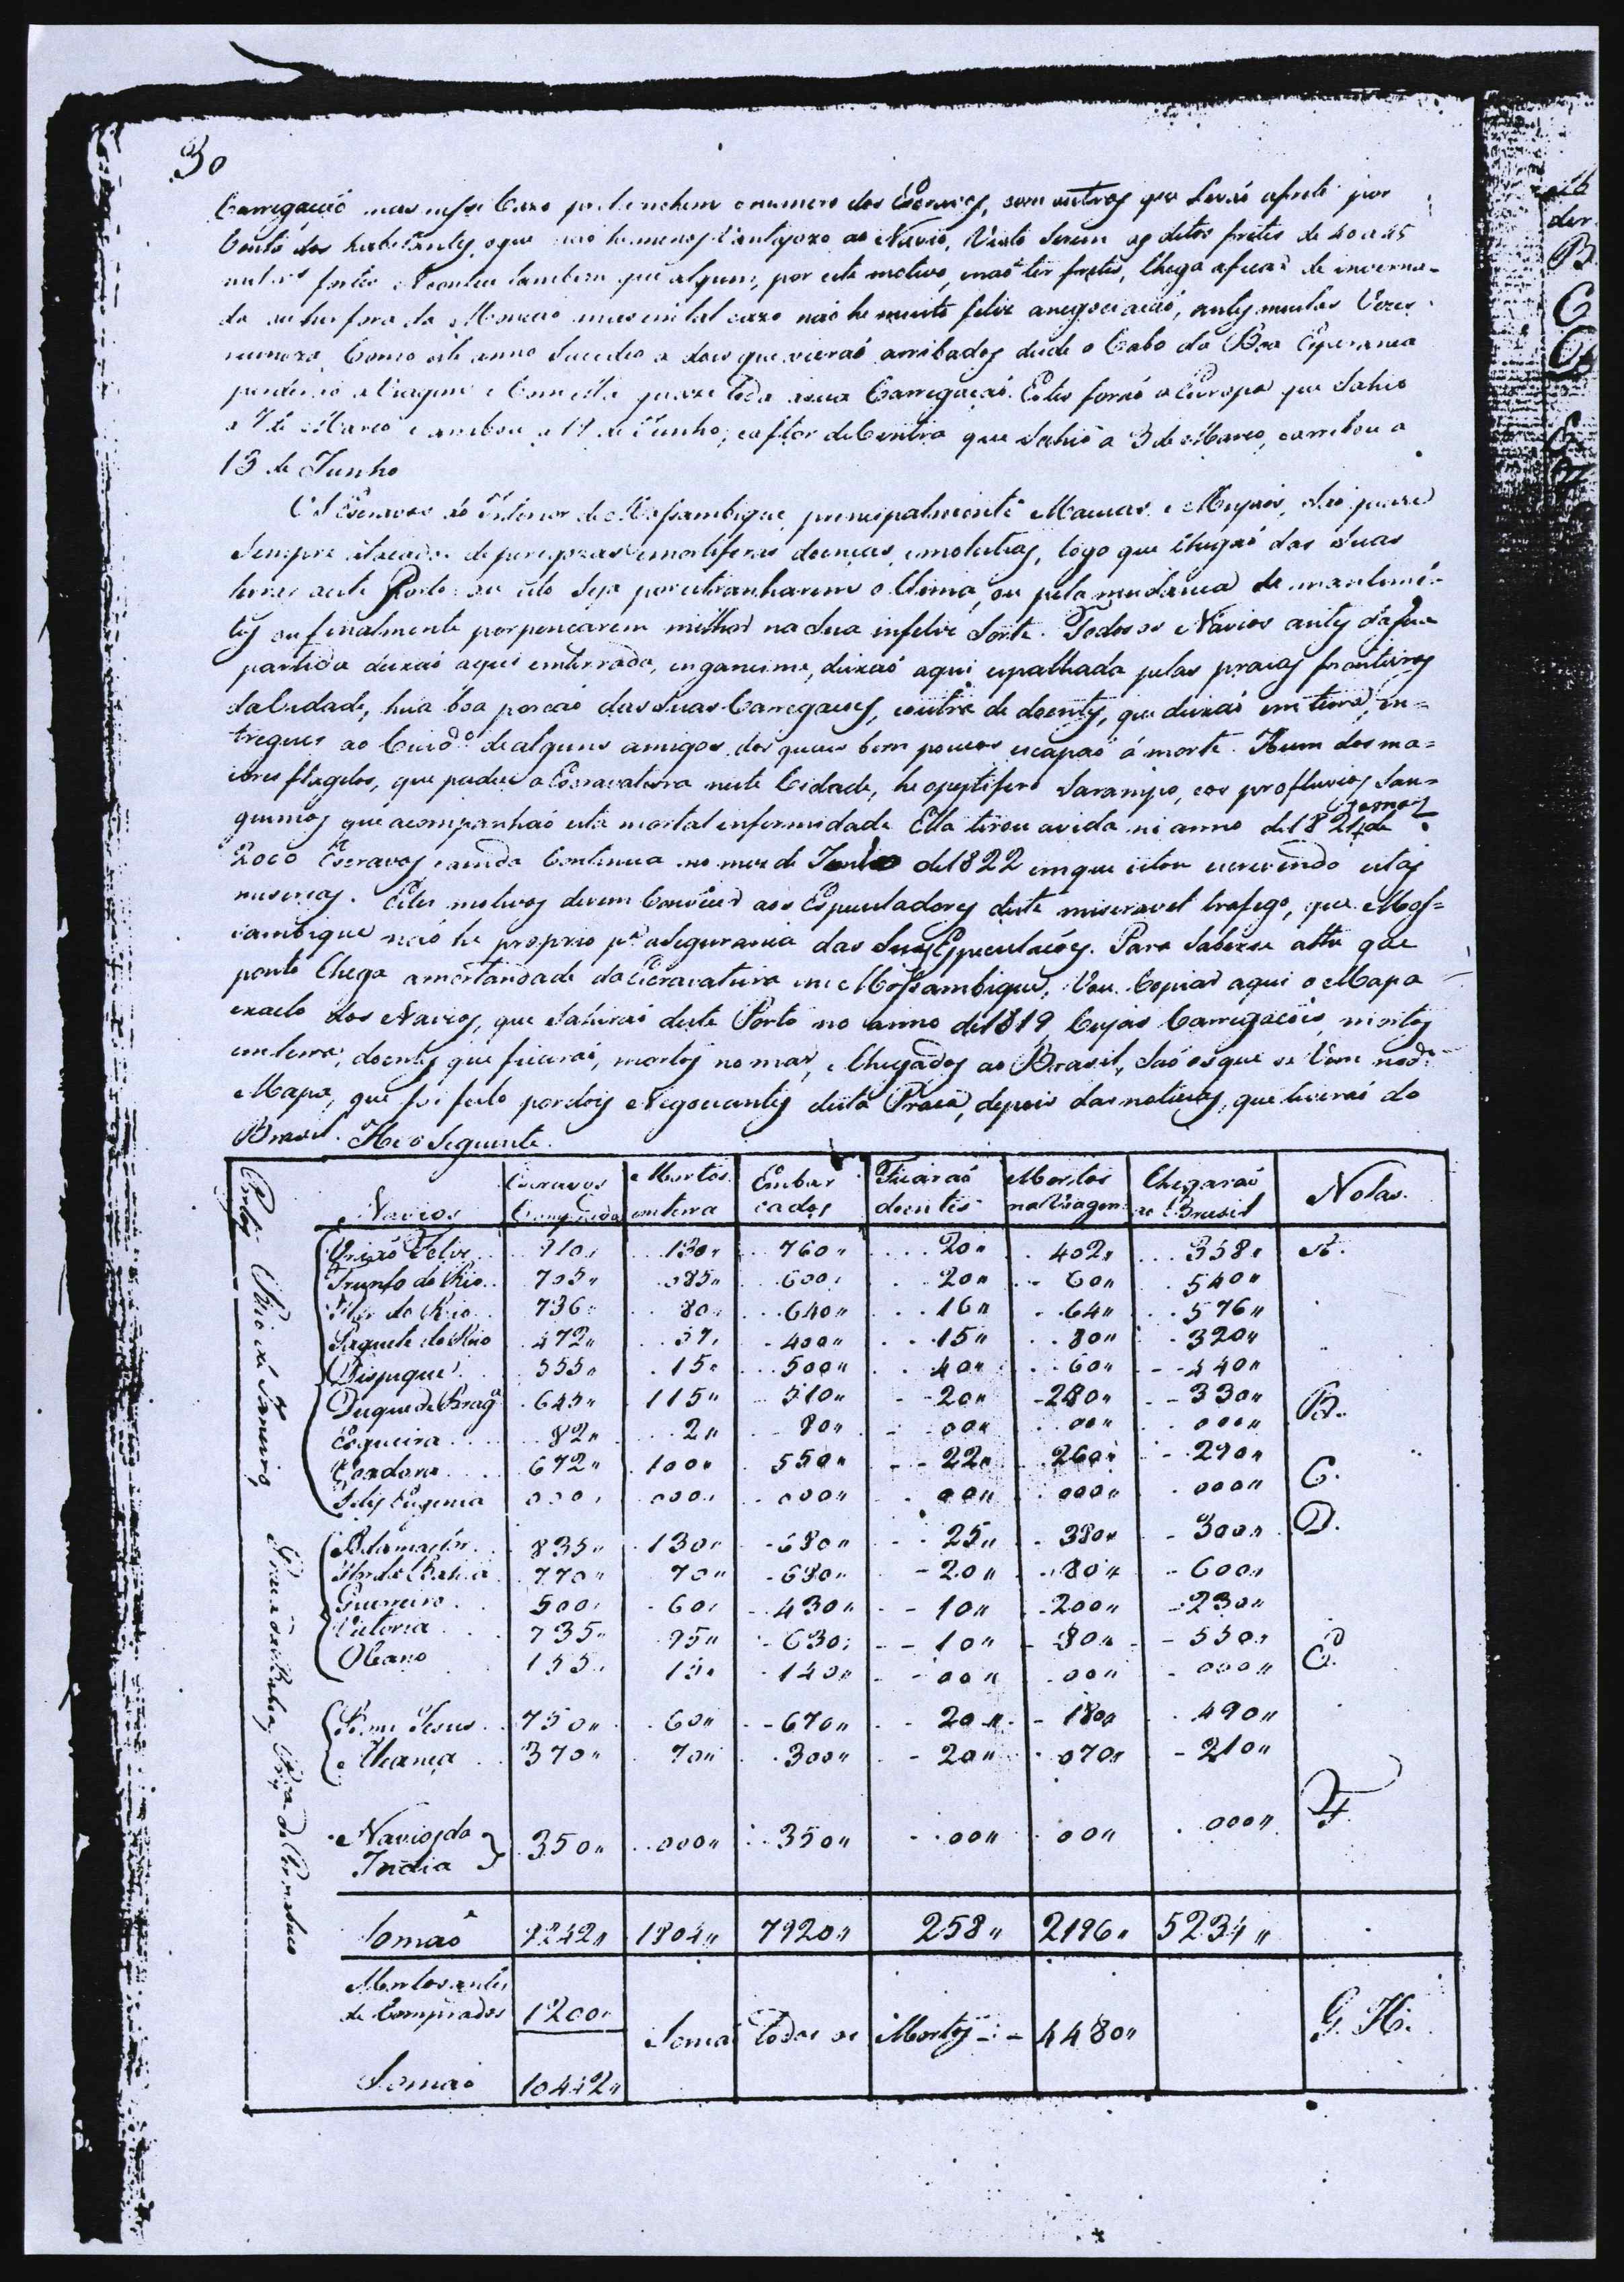 30
Carregação mas nesse Cazo prehenchem o numero dos Escravos, com outros que levaõ a frete por
Conta dos habitantes, o que não he menos Vantajozo ao Navio, Visto serem os ditos fretes de 40 a 45
fortes Acontece tambem que algum, por este motivo, e naõ ter fretes, Chega a ficar de inverna-
do ou hir fora da Monção mas em tal cazo naõ he muito felix a negociaçaõ, antes muitas Vezes
Como este anno Sucedeo a dous que vieraõ arribados desde o Cabo da Boa Esperança
perderaõ a Viagem e Com ella quaze toda a sua Carregaçaõ. Estes foraõ o Europa que Sahio
a 7 de Março e arribou a 11 de Junho, e a flor de Cintra que Sahio a 3 de Março, e arribou a
13 de Junho
Os Escravos do Interior de Mossambique, principalmente Macuas e Mujaos, são quaze
Sempre atacados de perigozas e mortiferas doenças, e molestias, logo que Chegaõ das Suas
terras a este Porto: ou isto Seja por estranharem o Clima, ou pela mudança de mantimẽ-
tos ou finalmente por pençarem milhor na Sua infelix Sorte. Todos os Navios antes da sua
partida deixaõ aqui enterrada, enganeime, deixaõ aqui espalhada pelas praias fronteiras
da Cidade, hũa bôa porçaõ das Suas Carregações, e outra de doentes, que deixaõ em terra, en=
tregues ao Cuidº de alguns amigos, dos quaes bem poucos escapaõ á morte. Hum dos ma=
iores flagelos, que padece a Escravatura neste Cidade, he o pestifero Sarampo, e os profluvios San=
guineos que acompanhaõ esta mortal enfermidade Ella tirou a vida no anno de 1821 de
2000 Escravos e ainda Continua no mez de Junho de 1822 em que estou escrevendo estas
miserias. Estes motivos devem Convencer aos Especuladores deste miseravel trafego, que Mos=
sambique naõ he proprio pª a Segurança das Suas Especulações. Para Saberse athe que
ponto Chega a mortandade da Escravatura em Mossambique, Vou Copiar aqui o Mapa
exacto dos Navios, que Sahiraõ deste Porto no anno de 1819, Cujas Carregações, mortos
em terra, doentes que ficaraõ, mortos no mar, e Chegados ao Brasil, Saõ os que se Vem no dº
Mapa, que foi feito por dois Negociantes desta Praça, depois das noticias, que tiveraõ do
Brasil. He o Seguinte.
Portos Navios Escravos Comprados Mortos em terra Embarcados Ficaraõ doentes Mortos na Viagem Chegaraõ ao Brasil Notas.
Rio de Janeiro
Felix 910 130 760 20 402 358 A.
Trunfo do Rio 705 085 600 20 60 540
Flor do Rio 736 80 640 16 64 576
Paquete do Rio 472 57 400 15 80 320
Disfuque 555 15 500 40 60 440
Duque de Bragª 645 115 510 20 280 330 B.
Esqueira 82 2 80 00 00 000
672 100 550 22 260 290 C.
Felis Eugenia 000 000 000 00 000 000 D.
Bahia
835 130 680 25 380 300
Flor da Bahia 770 70 680 20 80 600
Guerreiro 500 60 430 10 200 230
Vitoria 735 95 630 10 80 550
Oceano 155 15 140 00 00 000 E.
Bom Jesus 750 60 670 20 180 490
Aliança 370 70 300 20 070 210
Navios da India 350 000 350 00 00 000 F.
Somaõ 9242 1804 7920 258 2196 5234
Mortos antes de Comprados 1200
Somaõ todos os Mortos 4480 G. H.
Somaõ 10442